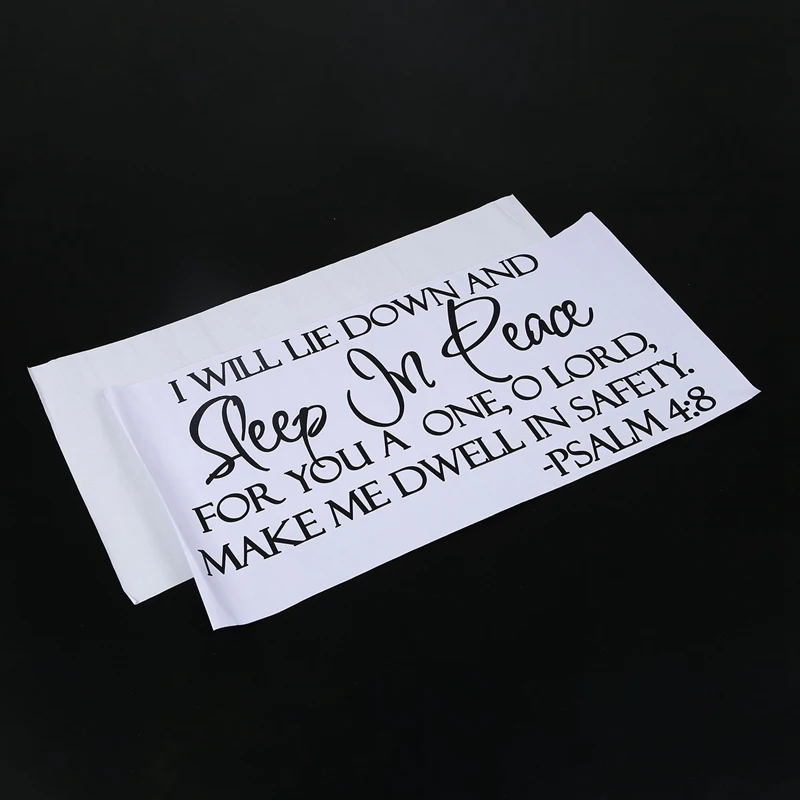 I WILL LIE DOWN AND
Sleep In Peace
FOR YOU A ONE, O LORD,
MAKE ME DWELL IN SAFETY.
-PSALM 4:8